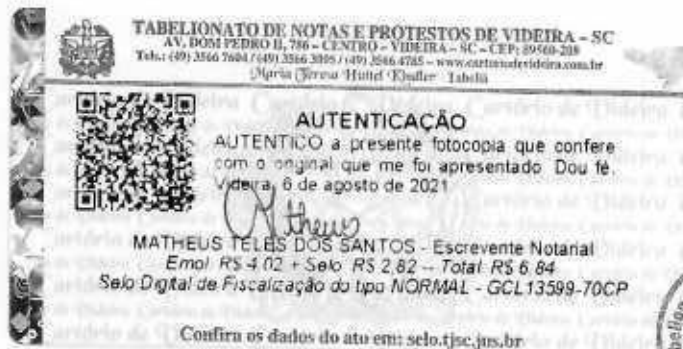 TABELIONATO DE NOTAS E PROTESTOS DE VIDEIRA - SC
AV. DOM PEDRO II, 786 - CENTRO - VIDEIRA - SC - CEP: 89560-208
Tels.: (49) 3566 7604 / (49) 3566 3095 / (49) 3566 4785 - www.cartoriodevideira.com.br
Maria Tereza Tabeliã
AUTENTICAÇÃO
AUTENTICO a presente fotocopia que confere
com o original que me foi apresentado. Dou fé.
Videira, 6 de agosto de 2021
Matheus
MATHEUS TELES DOS SANTOS - Escrevente Notarial
Emol: R$ 4,02 + Selo: R$ 2,82 -- Total: R$ 6,84
Selo Digital de Fiscalização do tipo NORMAL - GCL13599-70CP
Confira os dados do ato em: selo.tjsc.jus.br